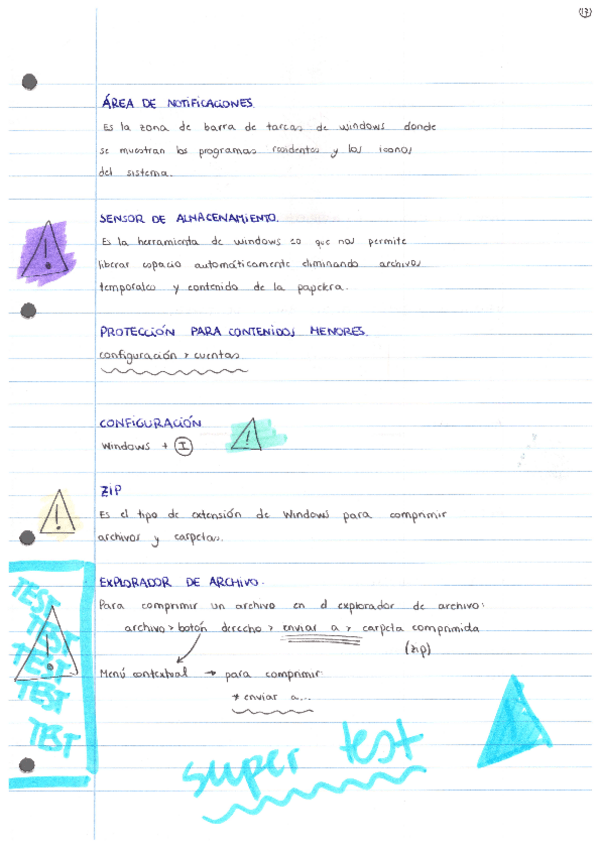 17
ÁREA DE NOTIFICACIONES
Es la zona de barra de tareas de windows donde
se muestran los programas residentes y los iconos
del sistema.
SENSOR DE ALMACENAMIENTO.
Es la herramienta de windows 10 que nos permite
liberar espacio automáticamente eliminando archivos
temporales y contenido de la papelera.
PROTECCIÓN PARA CONTENIDOS MENORES.
configuración > cuentas
CONFIGURACIÓN
windows + I
!
ZIP
Es el tipo de extensión de windows para comprimir
archivos y carpetas.
EXPLORADOR DE ARCHIVO.
Para comprimir un archivo en el explorador de archivo:
archivo > botón derecho > enviar a > carpeta comprimida
(zip)
Menú contextual → para comprimir
* enviar a...
TEST
TEST
TEST
TEST
TEST
super test